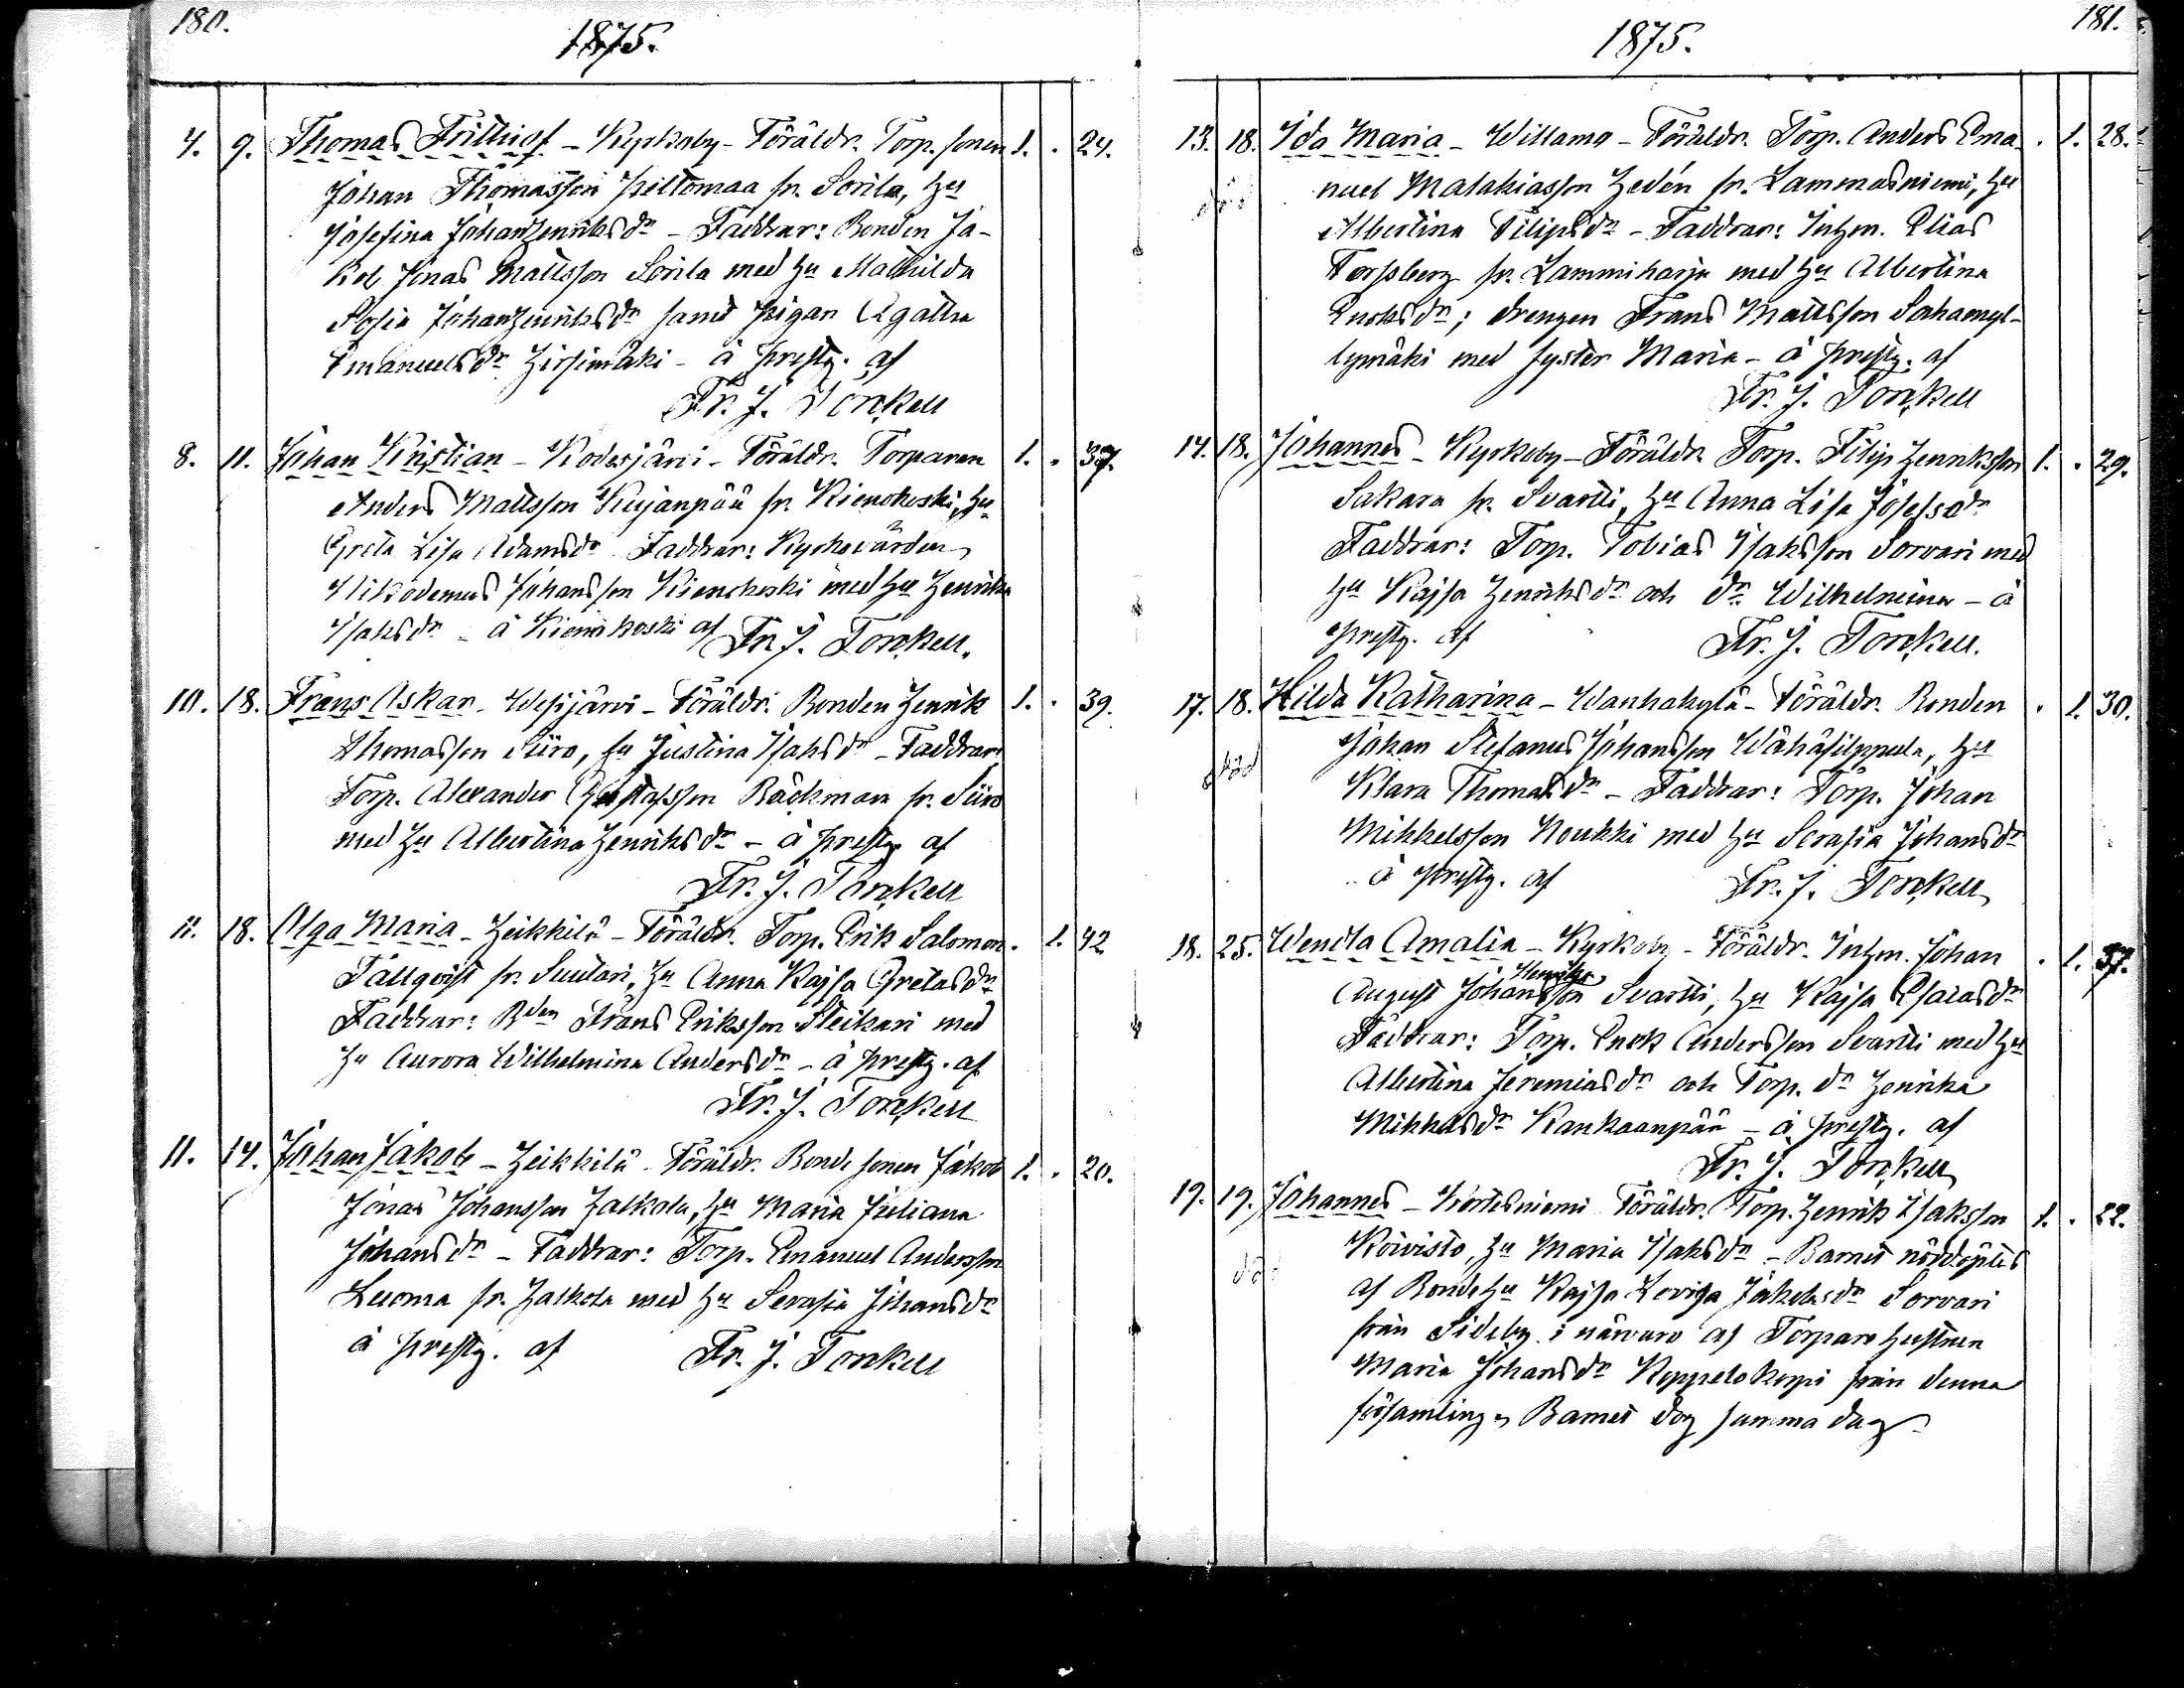 180.
1875.
4. 9. Thomas Frithiof - Kyrkoby - Föräldr. Torp. sonen 1. . 24.
Johan Thomasson Peltomaa fr. Sorila, Hu
Josefina Johan Henriksdr - Faddrar: Bonden Ja-
kob Jonas Mattsson Sorila med Hu Mathilda
Sofia Johan Henriksdr samt pigan Agatha
Emanuelsdr Hirsimäki - å prestg. af
Fr. J. Torckell
8. 11. Johan Kristian - Kodesjärvi - Föräldr. Torparen 1. . 37.
Anders Mattsson Kujanpää fr. Kienokoski, Hu
Greta Lisa Adamsdr Faddrar: Kyrkovärden
Nikodemus Johansson Kienokoski med Hu Henrika
Isaksdr - å Kienokoski af Fr. J. Torckell.
10. 18. Frans Oskar - Wesijärvi - Föräldr. Bonden Henrik 1. . 39.
Thomasson Siiro, hu Justina Isaksdr - Faddrar:
Torp. Alexander Gustafsson Bäckman fr. Siiro
med Hu Albertina Henriksdr - å prestg. af
Fr. J. Torckell
11. 18. Olga Maria - Heikkilä - Föräldr. Torp. Erik Salomon . 1. 42
Tallqvist fr. Suutari, Hu Anna Kajsa Gretasdr
Faddrar: Bden Frans Eriksson Steikari med
Hu Aurora Wilhelmina Andersdr - å prestg. af
Fr. J. Torckell
11. 14. Johan Jakob - Heikkilä - Föräldr. Bonde sonen Jakob 1. . 20.
Jonas Johansson Halkola, Hu Maria Juliana
Johansdr - Faddrar: Torp. Emanuel Andersson
Luoma fr. Halkola med Hu Serafia Johansdr
å prestg. af Fr. J. Torckell
181.
1875.
13. 18. Ida Maria - Willamo - Föräldr. Torp. Anders Ema- . 1. 28.
nuel Malakiasson Hedén fr. Lammasniemi, Hu
död
Albertina Filipsdr - Faddrar: Inhm. Elias
Forssberg fr. Lammiharju med Hu Albertina
Enoksdr; drengen Frans Mattsson Sahamyl-
lymäki med syster Maria - å prestg. af
Fr. J. Torckell
14. 18. Johannes - Kyrkoby - Föräldr. Torp. Filip Henriksson 1. . 29.
Sakara fr. Svartti, Hu Anna Lisa Josefsdr
Faddrar: Torp. Tobias Isaksson Sorvari med
Hu Kajsa Henriksdr och dr Wilhelmina - å
prestg. af Fr. J. Torckell.
17. 18. Hilda Katharina - Wanhakylä - Föräldr. Bonden . 1. 30.
Johan Stefanus Johansson Wähäfilppula, Hu
död
Klara Thomasdr - Faddrar: Torp. Johan
Mikkelsson Noukki med Hu Serafia Johansdr
å prestg. af Fr. J. Torckell
18. 25. Wendla Amalia - Kyrkoby - Föräldr. Inhm. Johan . 1. 37.
August Johansson Svartti, Hu Kajsa Esaiasdr
Faddrar: Torp. Enok Andersson Svartti med Hu
Albertina Jeremiasdr och Torp. dr Henrika
Mikkelsdr Kankaanpää - å prestg. af
Fr. J. Torckell
19. 19. Johannes - Kortesniemi Föräldr. Torp. Henrik Isaksson 1. . 22.
Koivisto, Hu Maria Isaksdr - Barnet nöddöptes
död
af Bonde Hu Kajsa Lovisa Jakobsdr Sorvari
från Sideby i närvaro af Torpare hustrun
Maria Johansdr Koppelokorpi från denna
församling. Barnet dog samma dag